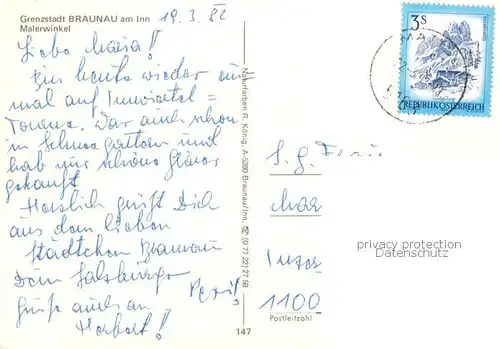 Grenzstadt BRAUNAU am Inn
Malerwinkel
19.3.82
Liebe Maria!
Bin heute wieder ein-
mal auf Innviertel=
Tour. War auch schon
in Schneegattern und
hab mir schöne Gläser
gekauft.
Herzlich grüßt Dich
aus dem lieben
Städtchen Braunau
Dein Salzburger
Grüße auch an
Herbert!
Naturfarben R. König, A-5280 Braunau/Inn, ☏ (0 77 22) 27 58
147
3 S
REPUBLIK ÖSTERREICH
S. g. Frau
Mar
1100
Postleitzahl
privacy protection
Datenschutz